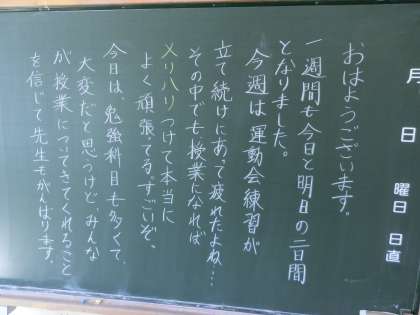 月 日 曜日 日直
おはようございます。
一週間も今日と明日の二日間
となりました。
今週は運動会練習が
立て続けにあって疲れたよね…
その中でも授業になれば
メリハリつけて本当に
よく頑張ってる。すごいぞ。
今日は、勉強科目も多くて、
大変だと思うけど、みんな
が授業についてきてくれること
を信じて先生もがんばります。